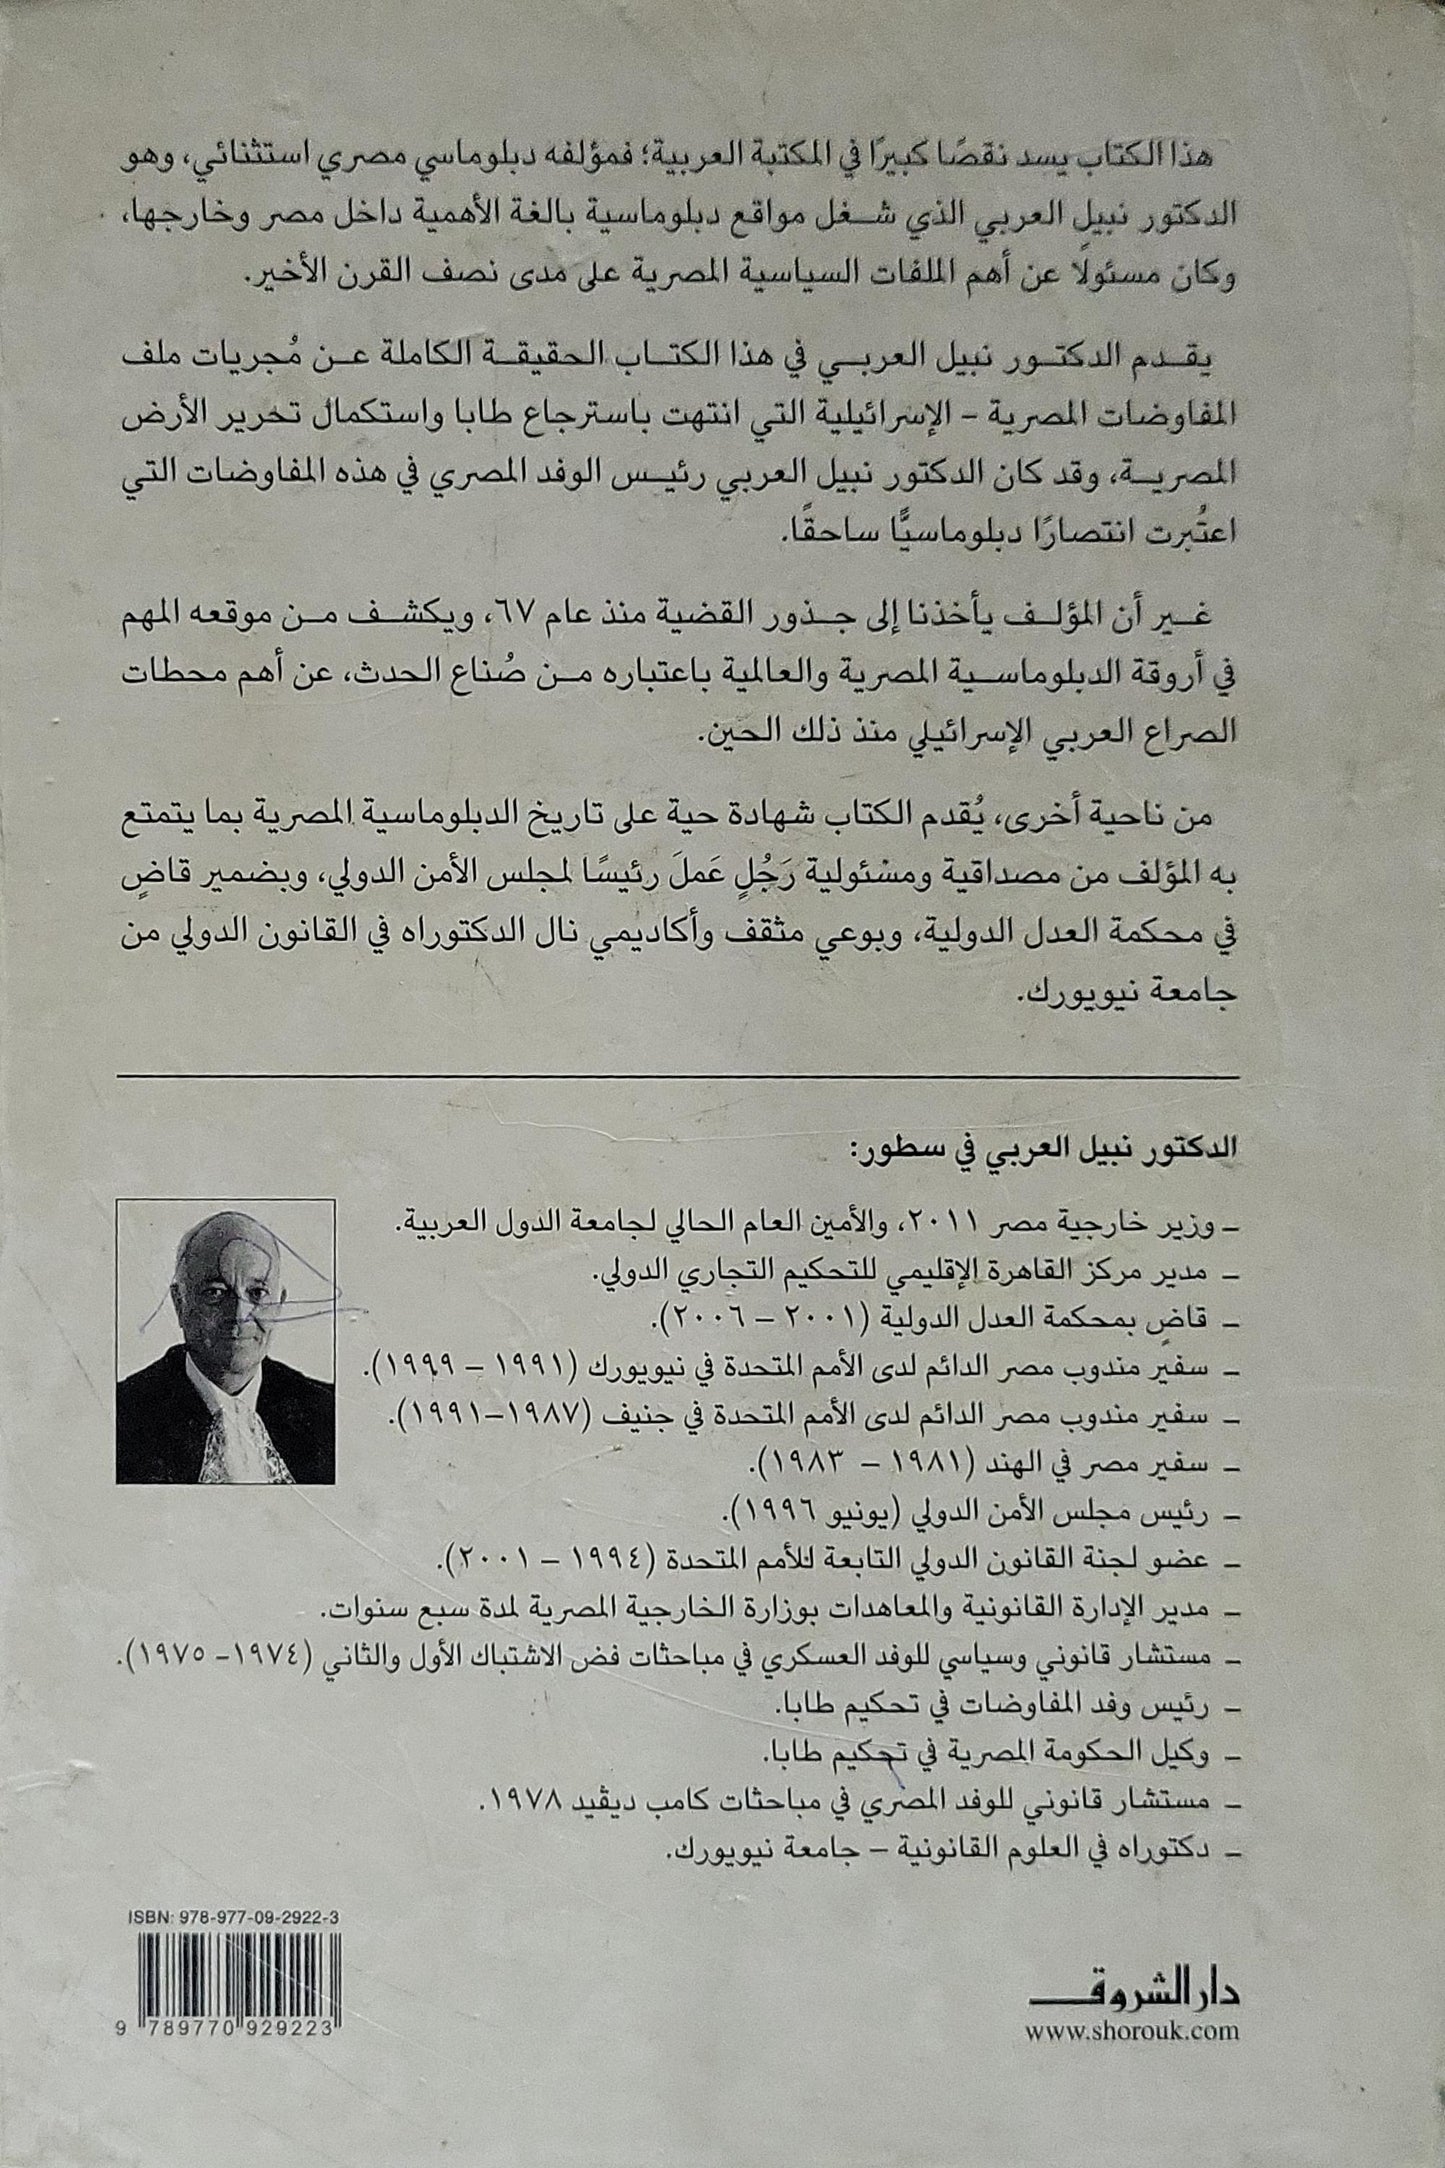 هذا الكتاب يسد نقصًا كبيرًا في المكتبة العربية؛ فمؤلفه دبلوماسي مصري استثنائي، وهو
الدكتور نبيل العربي الذي شغل مواقع دبلوماسية بالغة الأهمية داخل مصر وخارجها،
وكان مسئولًا عن أهم الملفات السياسية المصرية على مدى نصف القرن الأخير.
يقدم الدكتور نبيل العربي في هذا الكتاب الحقيقة الكاملة عن مُجريات ملف
المفاوضات المصرية – الإسرائيلية التي انتهت باسترجاع طابا واستكمال تحرير الأرض
المصرية، وقد كان الدكتور نبيل العربي رئيس الوفد المصري في هذه المفاوضات التي
اعتُبرت انتصارًا دبلوماسيًّا ساحقًا.
غير أن المؤلف يأخذنا إلى جذور القضية منذ عام ٦٧، ويكشف من موقعه المهم
في أروقة الدبلوماسية المصرية والعالمية باعتباره من صُناع الحدث، عن أهم محطات
الصراع العربي الإسرائيلي منذ ذلك الحين.
من ناحية أخرى، يُقدم الكتاب شهادة حية على تاريخ الدبلوماسية المصرية بما يتمتع
به المؤلف من مصداقية ومسئولية رَجُلٍ عَملَ رئيسًا لمجلس الأمن الدولي، وبضمير قاضٍ
في محكمة العدل الدولية، وبوعي مثقف وأكاديمي نال الدكتوراه في القانون الدولي من
جامعة نيويورك.
الدكتور نبيل العربي في سطور:
– وزير خارجية مصر ٢٠١١، والأمين العام الحالي لجامعة الدول العربية.
– مدير مركز القاهرة الإقليمي للتحكيم التجاري الدولي.
– قاضٍ بمحكمة العدل الدولية (٢٠٠١ – ٢٠٠٦).
– سفير مندوب مصر الدائم لدى الأمم المتحدة في نيويورك (١٩٩١ – ١٩٩٩).
– سفير مندوب مصر الدائم لدى الأمم المتحدة في جنيف (١٩٨٧–١٩٩١).
– سفير مصر في الهند (١٩٨١ – ١٩٨٣).
– رئيس مجلس الأمن الدولي (يونيو ١٩٩٦).
– عضو لجنة القانون الدولي التابعة للأمم المتحدة (١٩٩٤ – ٢٠٠١).
– مدير الإدارة القانونية والمعاهدات بوزارة الخارجية المصرية لمدة سبع سنوات.
– مستشار قانوني وسياسي للوفد العسكري في مباحثات فض الاشتباك الأول والثاني (١٩٧٤– ١٩٧٥).
– رئيس وفد المفاوضات في تحكيم طابا.
– وكيل الحكومة المصرية في تحكيم طابا.
– مستشار قانوني للوفد المصري في مباحثات كامب ديڤيد ١٩٧٨.
– دكتوراه في العلوم القانونية – جامعة نيويورك.
ISBN: 978-977-09-2922-3
9 789770 929223
دار الشروق
www.shorouk.com